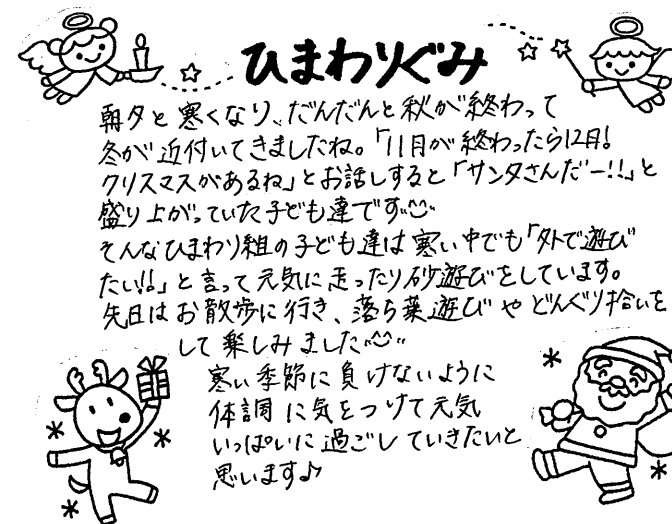 ひまわりぐみ
朝夕と寒くなり、だんだんと秋が終わって
冬が近付いてきましたね。「11月が終わったら12月!
クリスマスがあるね」とお話しすると「サンタさんだー!!」と
盛り上がっていた子ども達です^^
そんなひまわり組の子ども達は寒い中でも「外で遊び
たい!!」と言って元気に走ったり砂遊びをしています。
先日はお散歩に行き、落ち葉遊びやどんぐり拾いを
して楽しみました^^
寒い季節に負けないように
体調に気をつけて元気
いっぱいに過ごしていきたいと
思います♪